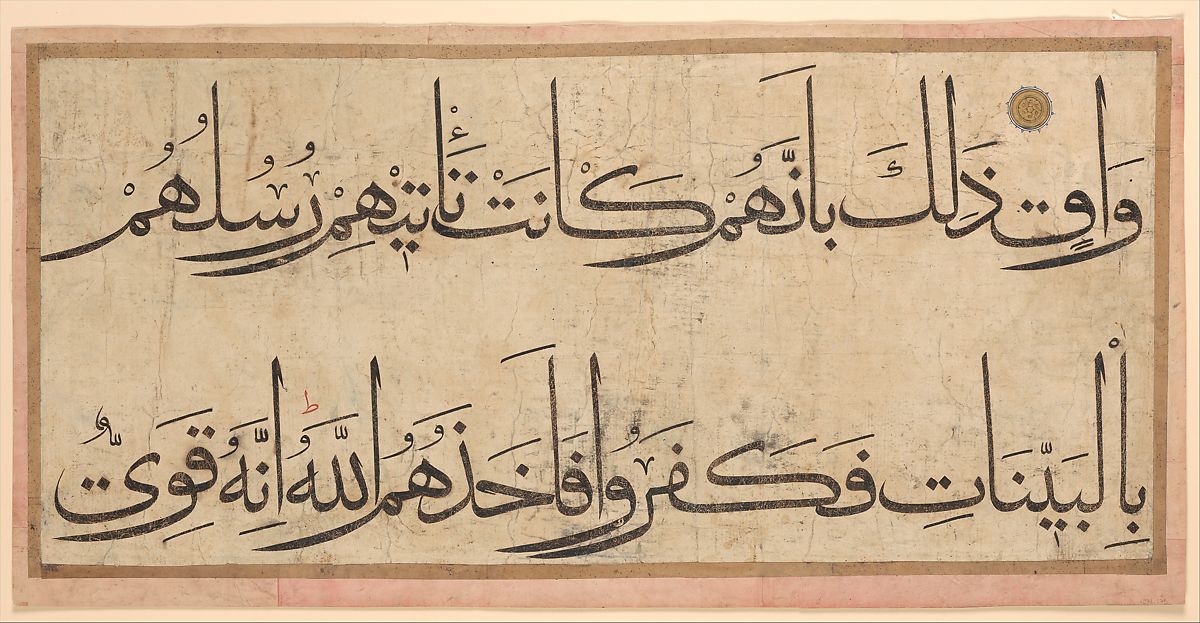 وَاقٍ ذَلِكَ بِاَنَّهُمْ كَانَتْ تَأْتِيهِمْ رُسُلُهُمْ
بِالْبَيِّنَاتِ فَكَفَرُوا فَاَخَذَهُمُ اللَّهُ ط اِنَّهُ قَوِىٌّ